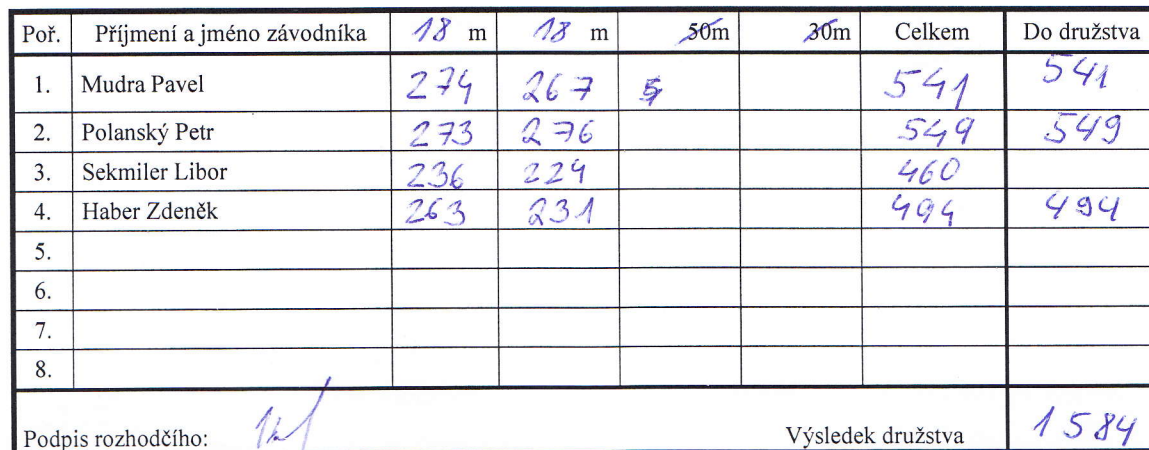 Poř. Příjmení a jméno závodníka 18 m 18 m 50m 30m Celkem Do družstva
1. Mudra Pavel 274 267 541 541
2. Polanský Petr 273 276 549 549
3. Sekmiler Libor 236 224 460
4. Haber Zdeněk 263 231 494 494
5.
6.
7.
8.
Podpis rozhodčího: Výsledek družstva 1584